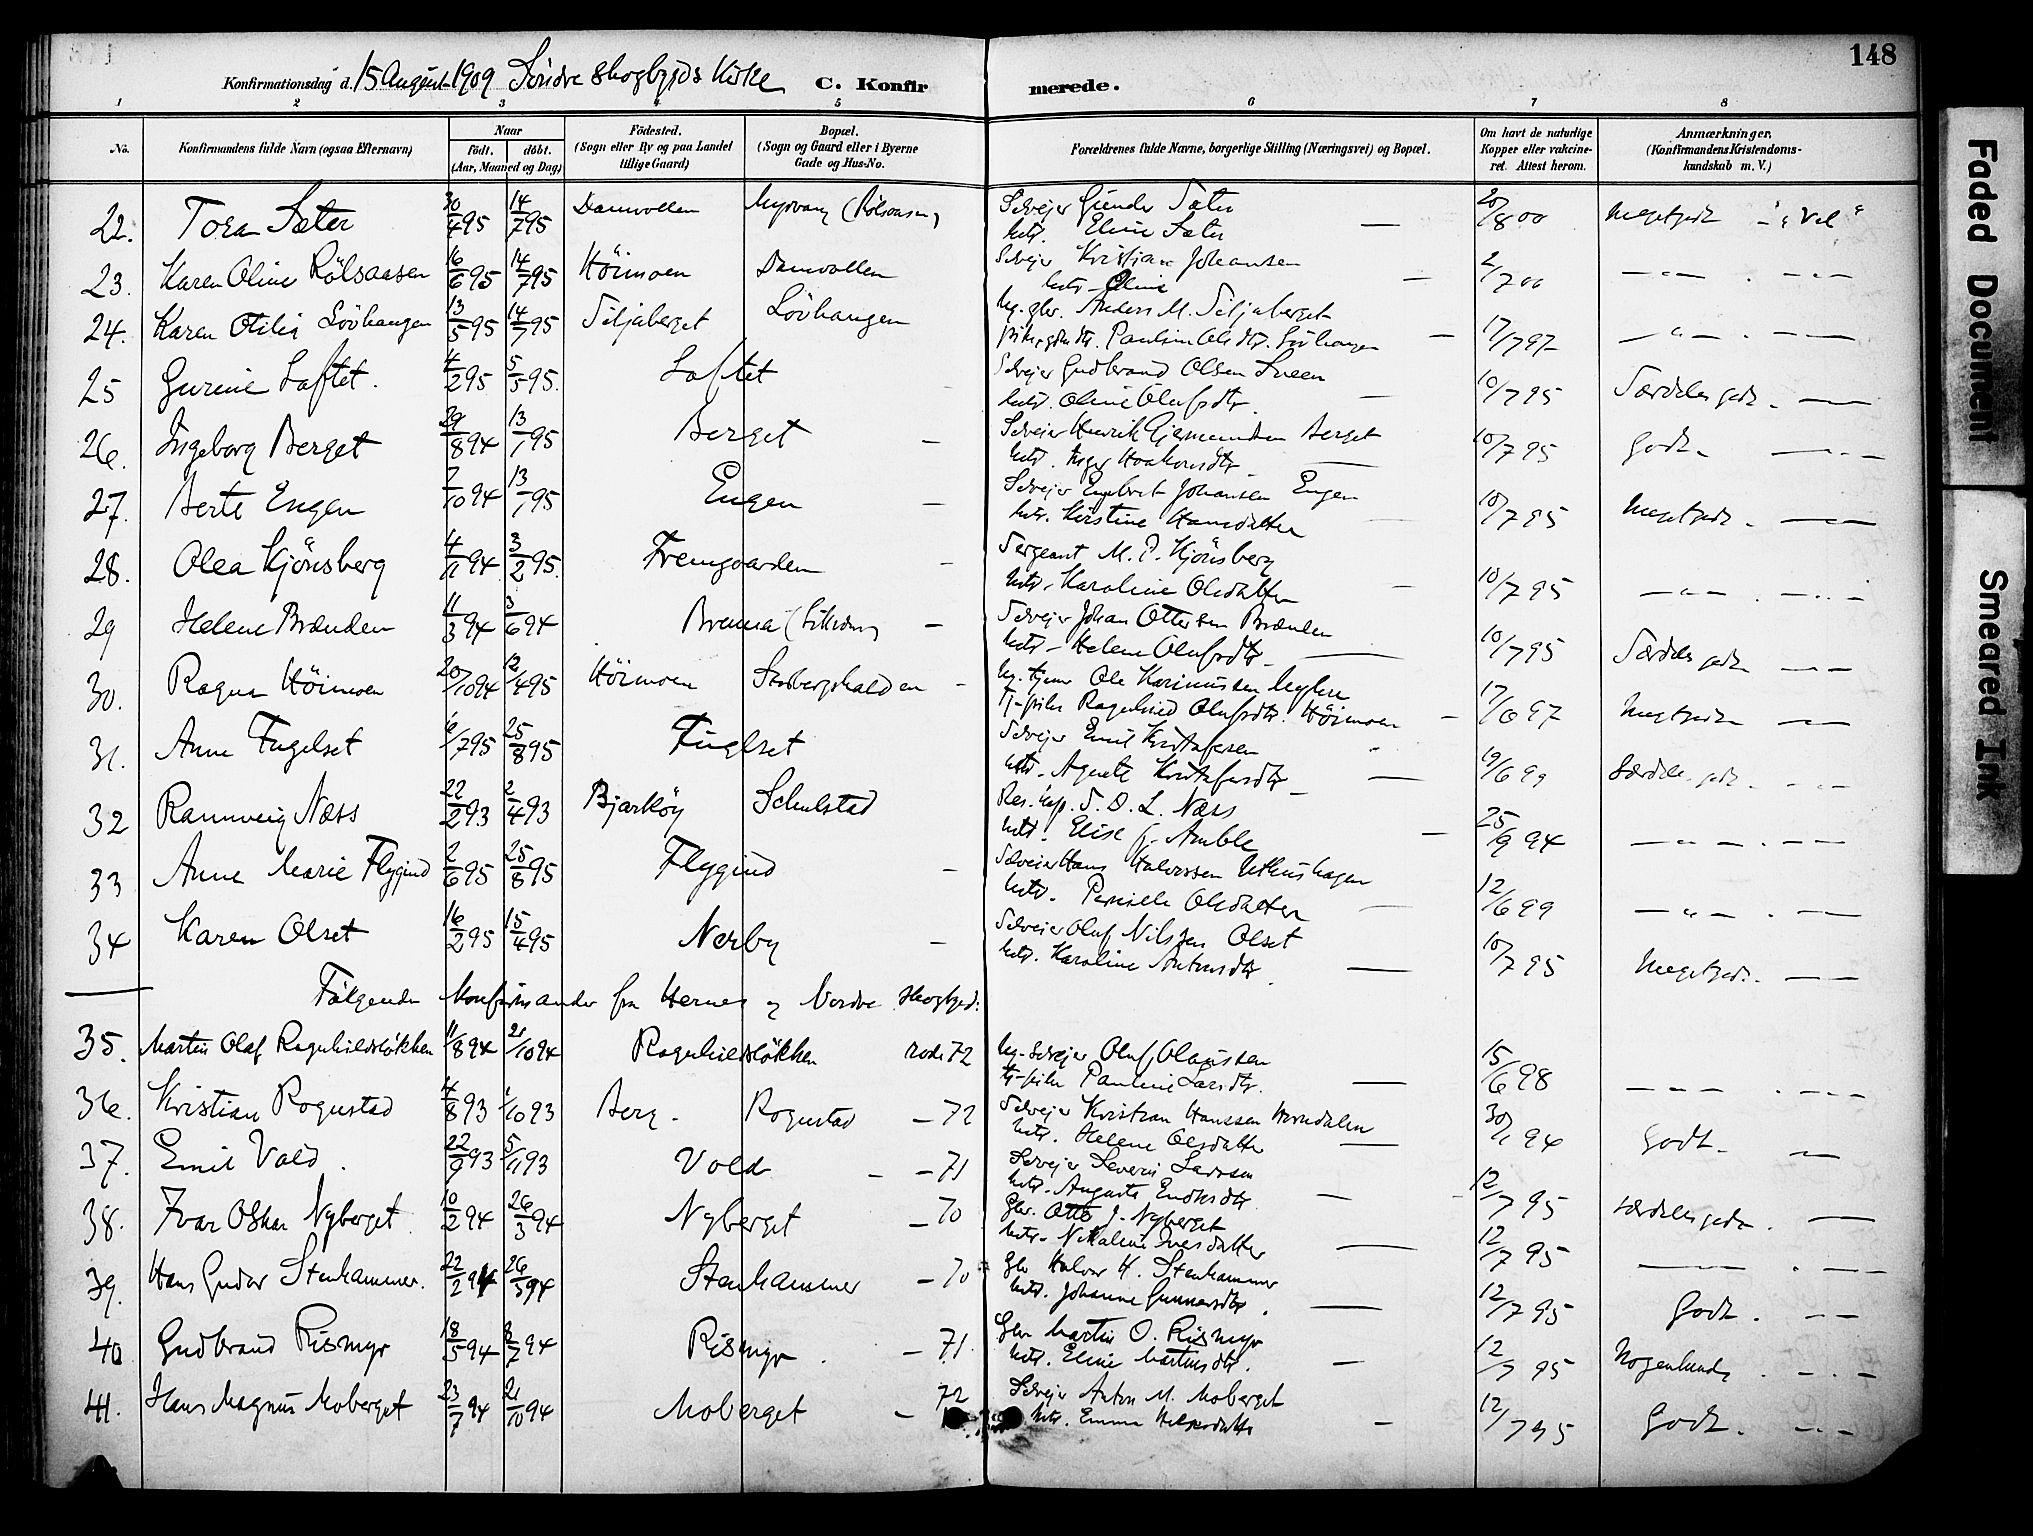 148
Konfirmationsdag d. 15 August 1909 Söndre Skogbygds Kirke C. Konfirmerede.
1 2 3 4 5 6 7 8
No. Konfirmandens fulde Navn (ogsaa Efternavn) Naar Födt. döbt. (Aar, Maaned og Dag) Födested. (Sogn eller By og paa Landet tillige Gaard) Bopæl. (Sogn og Gaard eller i Byerne Gade og Hus-No. Forældrenes fulde Navne, borgerlige Stilling (Næringsvei) og Bopæl. Om havt de naturlige Kopper eller vakcineret. Attest herom. Anmærkninger, (Konfirmandens Kristendomskundskab m. V.)
22. Tora Sæter 30/4 95 14/7 95 Damvollen Selvejer Gunder Sæter 20/8 00 Megetgodt - "Vel"
Eline Sæter
23. Karen Oline Rölsaasen 16/6 95 14/7 95 Höimoen Damvollen Selvejer Kristian Johansen 2/7 00 — " — . — " —
Oline
24. Karen Otilia Lövhaugen 13/5 95 14/7 95 Siljaberget Lövhaugen Anders M. Siljaberget
Pauline Olsdtr. Lövhaugen 17/7 97 — " — . — —
25 Gurine Loftet. 4/2 95 5/5 95. Loftet Selvejer Gudbrand Olsen Sneen
Oline Olufsdtr. 10/7 95 Særdeles godt. — —
26. Ingeborg Berget 29/8 94 13/1 95 Berget — Selvejer Henrik Gjermundsen Berget
Inger Haakonsdtr. 10/7 95 Godt. — " —
27. Berte Engen 7/10 94 13/1 95 Engen — Selvejer Engbret Johansen Engen
Kirstine Hansdatter 10/7 95 Megetgodt. — " —
28. Olea Kjönsberg 4/11 94 3/2 95. Fremgaarden — Sergeant M. P. Kjönsberg
Karoline Olsdatter 10/7 95 — " — . — " —
29 Helene Brænden 11/3 94 3/6 94 Brenna — Selvejer Johan Ottersen Brænden
Helene Olufsdtr. 10/7 95 Særdeles godt — —
30. Ragna Höimoen 20/10 94 12/4 95 Höimoen Ole Karinussen
Ragnhild Olufsdtr. Höimoen — 17/6 97 Megetgodt — —
31. Anne Fugelset 6/7 95 25/8 95 Fuglset Selvejer Emil Kristafersen
Agnete Kristafersdtr — 19/6 99 Særdeles godt
32 Rannveig Næss 22/2 93 2/4 93 Bjarköy Schulstad Res. kap. S. O. L. Næss
Elise G. Amble — 25/9 94 — " — . — —
33 Anne Marie Flygind 2/6 95 25/8 95 Flygind — Selveier Hans Halvorsen Uthushagen
Pernille Olsdatter — 12/6 99 — " — . — —
34 Karen Olset 16/2 95 15/4 95 Nerby — Selveier Oluf Nilssen Olset
Karoline Antonsdtr. — 10/7 95 Megetgodt. — —
Fölgende Konfirmander fra Hernes og Nordre Skogbygd:
35. Martin Olaf Ragnhildslökken 11/8 94 21/10 94 Ragnhildslökken rode 72 Oluf Olaussen
Pauline Larsdtr. — 15/6 98 — " — . — —
36. Kristian Rogustad 4/8 93 1/10 93 Berg. Rogustad — 72 Selvejer Kristian Hanssen
Helene Olsdatter — 30/1 94 Godt. —
37. Emil Vold. 22/9 93 5/11 93 Vold — 71 Selvejer Severin Larssen
Auguste Endresdtr. — 12/7 95 Særdeles godt. —
38. Ivar Oskar Nyberget. 10/2 94 26/3 94 Nyberget — 70 Gbr. Otto J. Nyberget
Nikoline Iversdatter — 12/7 95 — . — —
39. Hans Gudor Stenhammer. 22/2 94 26/3 94 Stenhammer — 70 Gbr Halvor H. Stenhammer
Johanne Gunnarsdtr. — 12/7 95 Godt. — —
40 Gudbrand Rismyr 18/5 94 8/7 94 Rismyr. — 71. Gbr Martin O. Rismyr
Eline Martinsdtr. — 12/7 95 Nogenlunde. — . —
41. Hans Magnus Moberget 23/7 94 21/10 94 Moberget — 72 Selvejer Anton M. Moberget
Emma — 12/7 95 Godt. — . —
Faded Document
Smeared Ink